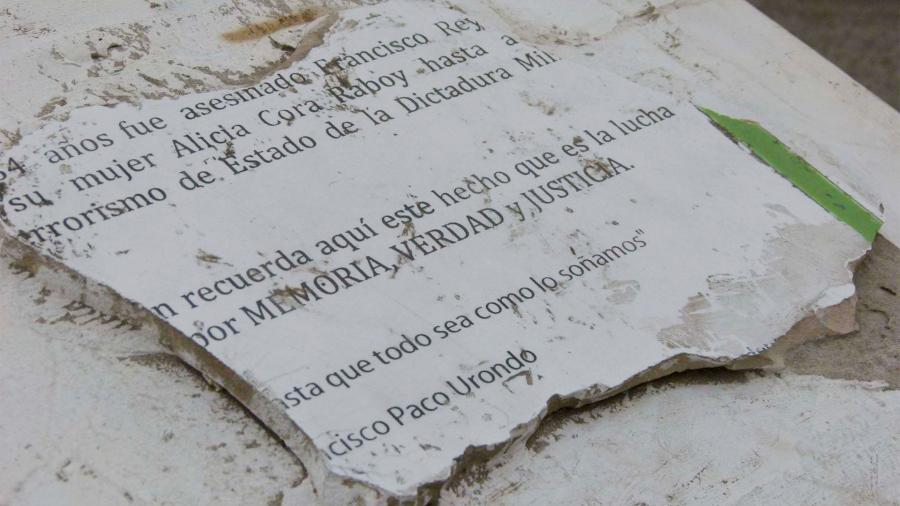 años fue asesinado Francisco Rey
su mujer Alicia Cora Raboy hasta a
rrorismo de Estado de la Dictadura Mil
n recuerda aquí este hecho que es la lucha
por MEMORIA, VERDAD y JUSTICIA.
sta que todo sea como lo soñamos"
cisco Paco Urondo